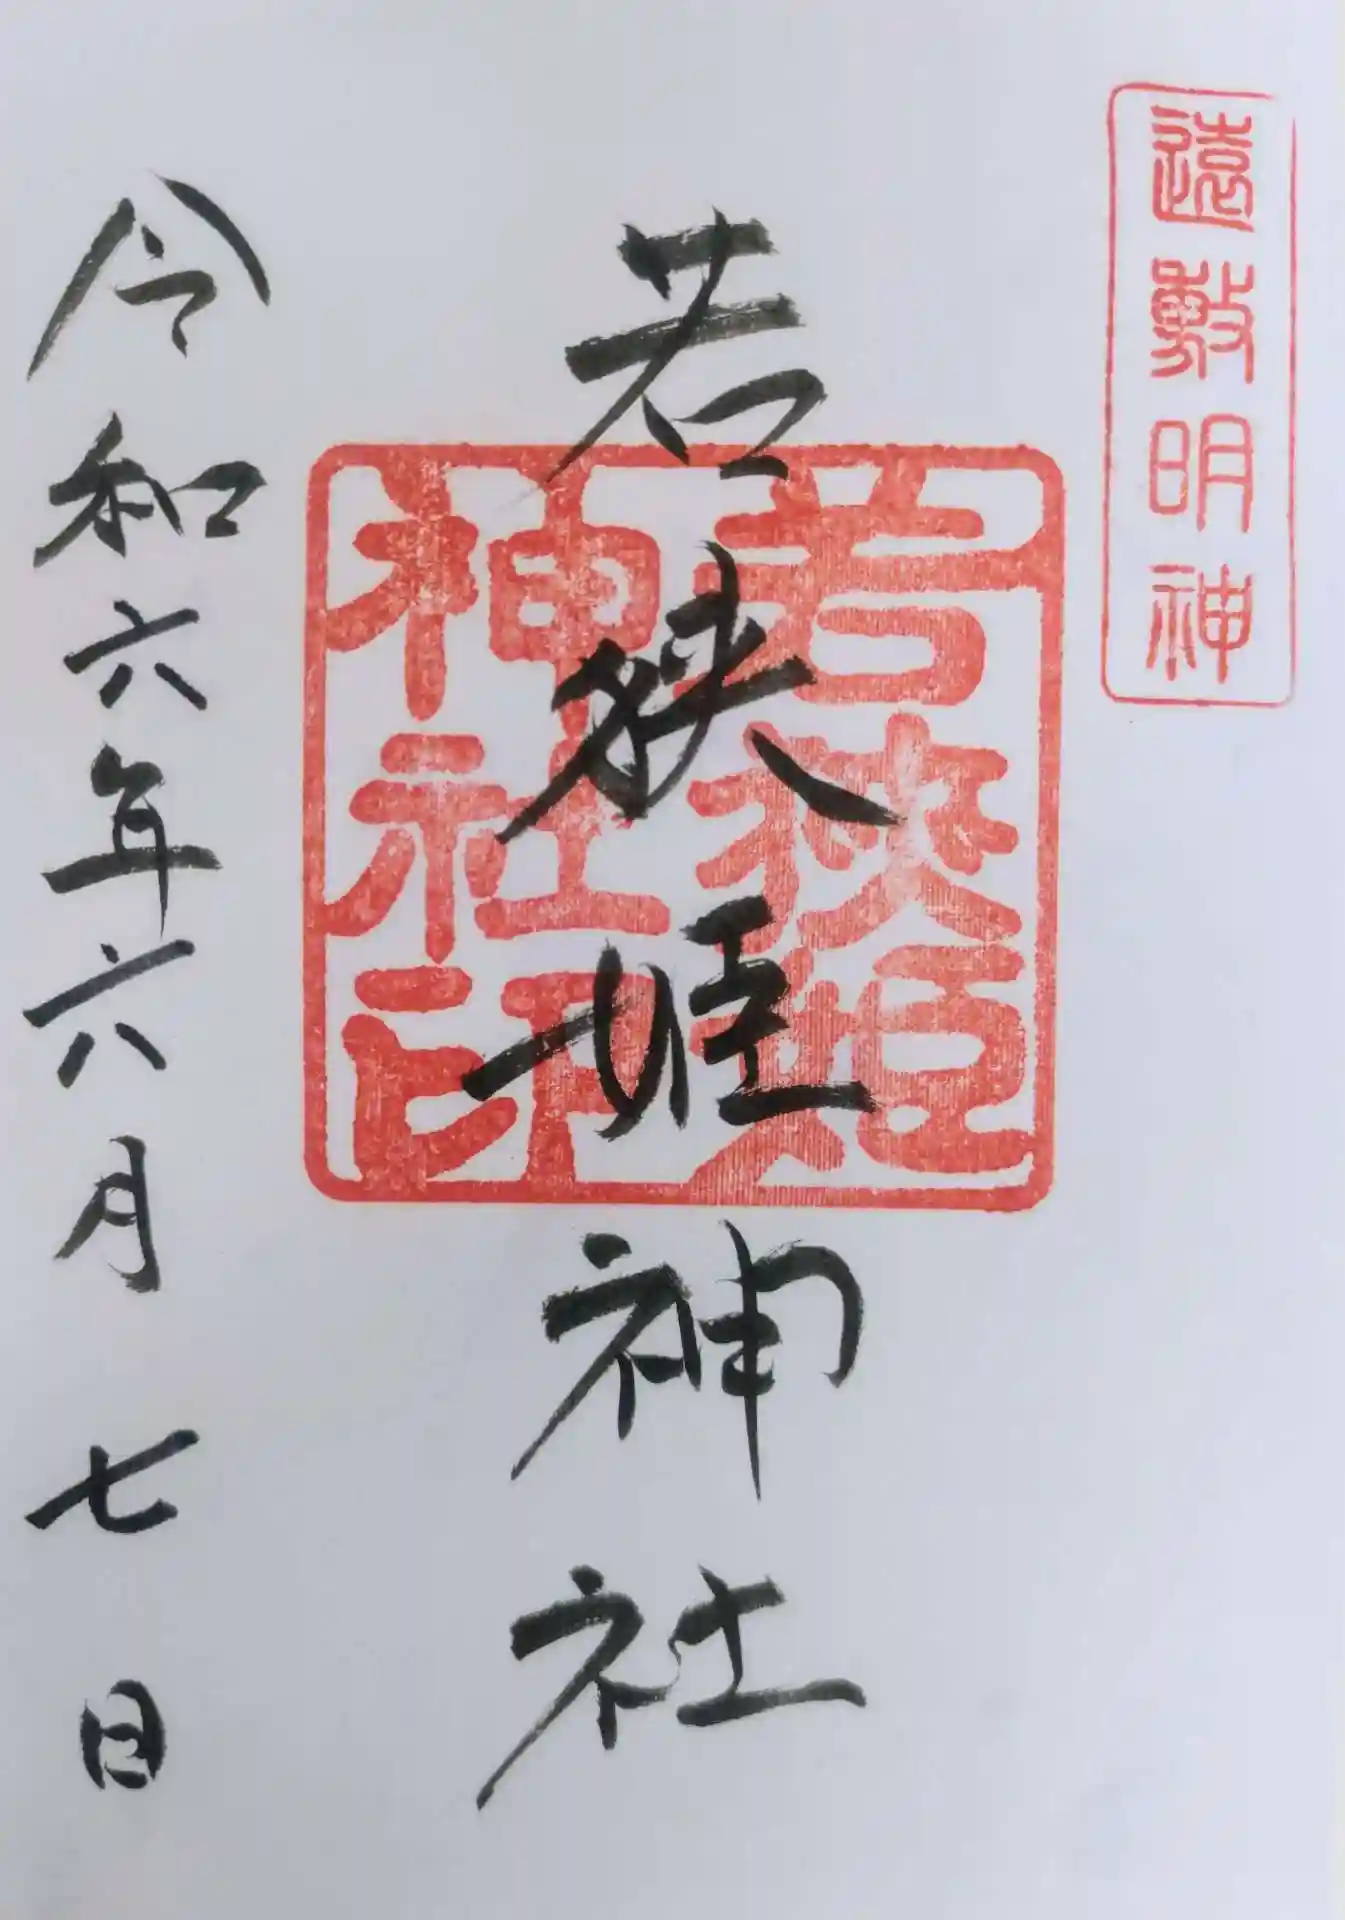 遠敷明神
若狹姫神社
若狭姫
神社印
令和六年六月七日